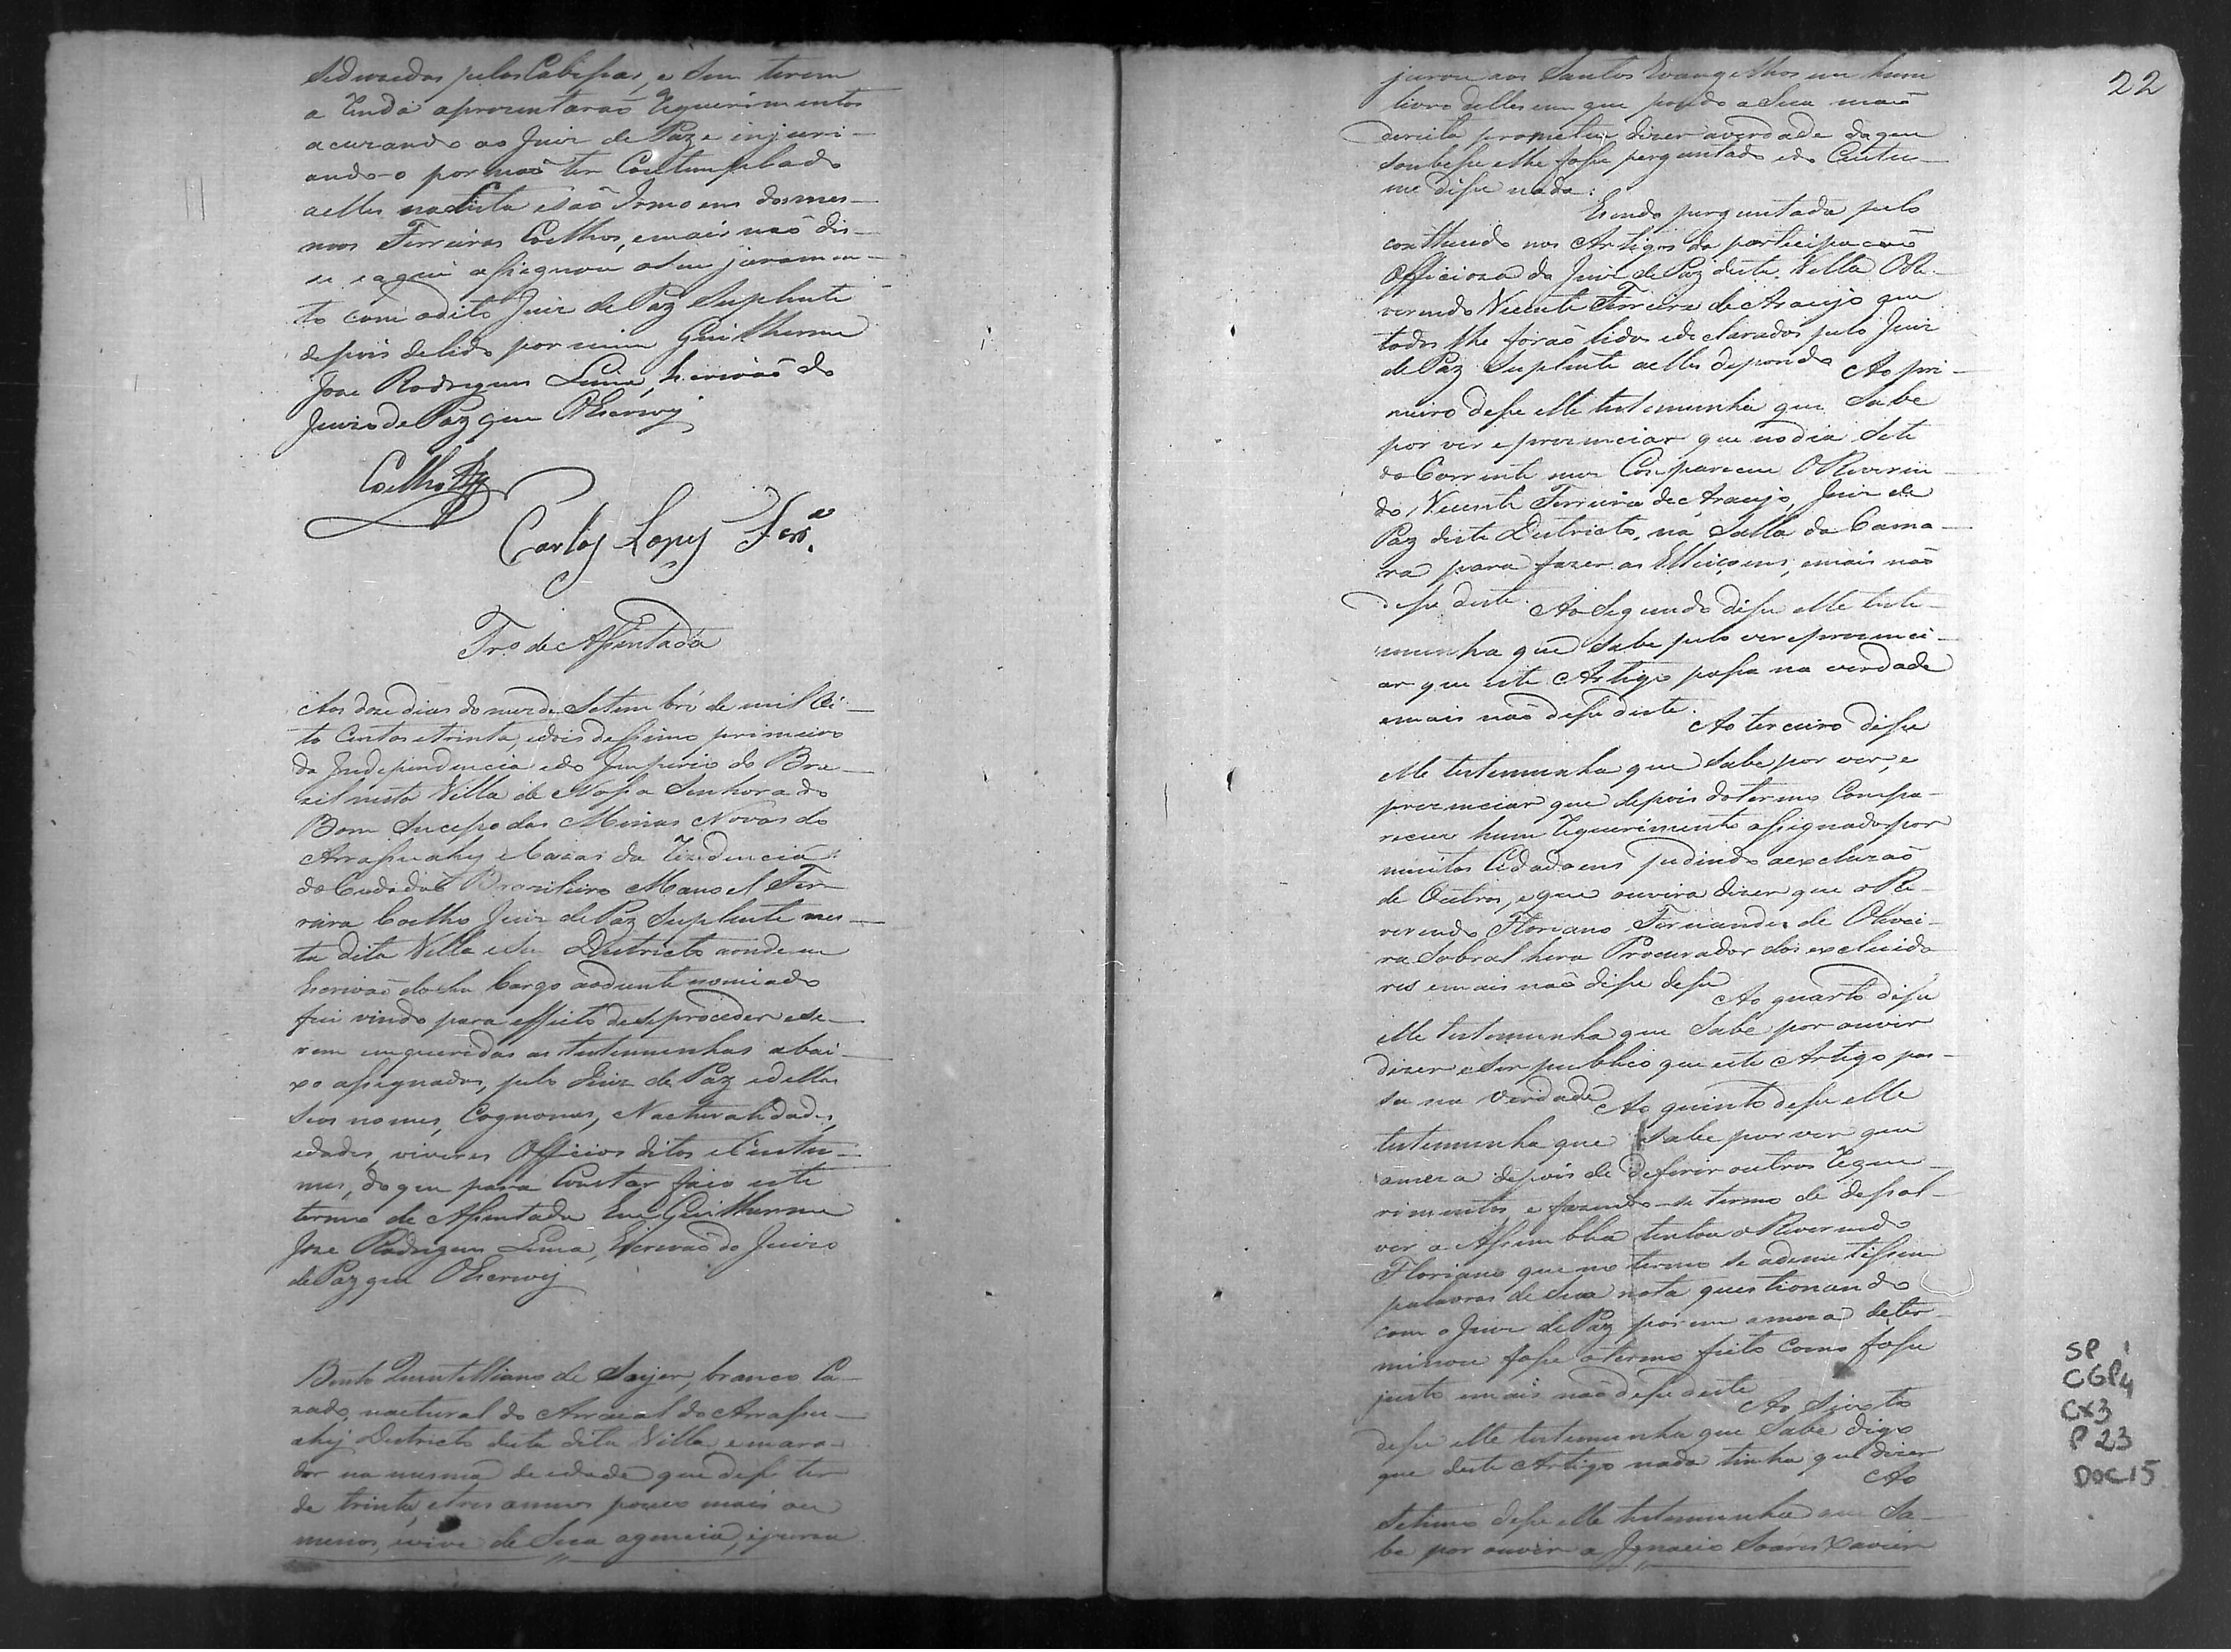 seduzidos pelos Cabeſsas, e sem terem
a Renda aprozentarão Requerimentos
acuzando ao Juiz de Paz e injuri-
ando-o por não ter Contemplado
a elles na Lista e são Irmoens dos mes-
mos Ferreiras Coelhos, emais não dis-
se e aqui aſsignou o seu juramen-
to com o dito Juiz de Paz Suplente
depois de lido por mim Guilherme
Joze Rodrigues Lima, Escrivão do
Juizo de Paz que O Escrevy
Coelho
Carlos Lopes Ferr.ª
Tr.º de Aſsentada
Aos doze dias do mez de Setembro de mil Oi-
to Centos e trinta, e dois deſsimo primeiro
da Independencia e do Imperio do Bra-
zil nesta Villa de Noſsa Senhora do
Bom Suceſso das Minas Novas do
Arraſsuahy e Cazas da Rezidencia
do Cidadão Brazileiro Manoel Fer-
reira Coelho Juiz de Paz Suplente nes-
ta dita Villa e seu Destricto aonde eu
Escrivão do seu Cargo aodiente nomiado
fui vindo para effeito de se proceder e se-
rem enqueridas as testemunhas abai-
xo aſsignadas, pelo Juiz de Paz e dellas
seos nomes, Cognomes, Nacturalidades,
idades, viveres Officios ditos e Custu-
mes, do que para Constar faço este
termo de Aſsentada Eu Guilherme
Joze Rodrigues Lima, Escrivão do Juizo
de Paz que O Escrevy
Bento Quintilliano de branco Ca-
zado, nactural do Arraial do Arraſsu-
ahy Destricto desta dita Villa e mora-
dor na mesma de idade que deſse ter
de trinta, e tres annos pouco mais ou
menos, e vive de Sua agencia, e jurou
22
jurou aos Santos Evangelhos em hum
livro delles em que pondo a Sua mão
direita prometeu dizer a verdade do que
soubeſse e lhe foſse perguntado e do Custu-
me diſse nada.
E sendo perguntada pelo
conthiudo nos Artigos da participação
Officioza do Juiz de Paz desta Villa O Re-
verendo Vicente Ferreira de Araujo que
todos lhe forão lidos e declarados pelo Juiz
de Paz Suplente a elles depondo Ao pri-
meiro deſse elle testemunha que Sabe
por ver e prezenciar que no dia Sete
do Corrente mez Compareceu O Reveren-
do Vicente Ferreira de Araujo, Juiz de
Paz deste Destricto, na Salla da Cama-
ra para fazer as Elleiçoens, emais não
deſse deste. Ao Segundo diſse elle teste-
munha que Sabe pelo ver e prezenci-
ar que este Artigo paſsa na verdade
emais não deſse deste. Ao terceiro diſse
elle testemunha que Sabe por ver, e
prezenciar que depois do termo Compa-
receu hum Requerimento aſsignado por
muitos Cidadoens pedindo a excluzão
de Outros, e que ouvira dizer que o Re-
verendo Floriano Fernandes de Olivei-
ra Sobral hera Procurador dos excluido
res emais não diſse deſse Ao quarto diſse
elle testemunha que Sabe por ouvir
dizer e Ser publico que este Artigo pas-
sa na verdade Ao quinto deſse elle
testemunha que Sabe por ver que
a meza depois de deferir outros Reque-
rimentos e fazendo-se termo de deſsol-
ver a Aſsemblea tentou o Reverendo
Floriano que no termo se ademetiſsem
palavras de Sua nota questionando
com o Juiz de Paz porem a meza deter-
minou foſse o termo feito como foſse
justo emais não deſse deste Ao Sexto
deſse elle testemunha que Sabe digo
que deste Artigo nada tinha que dizer
Ao
Setimo deſse elle testemunha que Sa-
be por ouvir a Ignacio Soares Xavier
SP 1
CGP4
CX3
P 23
DOC15